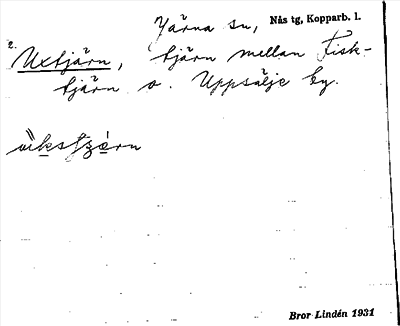 Yärna sn, Nås tg, Kopparb. l.
2.
Uxtjärn, tjärn mellan Fisk-
tjärn o. Uppsälje by.
Bror Lindén 1931